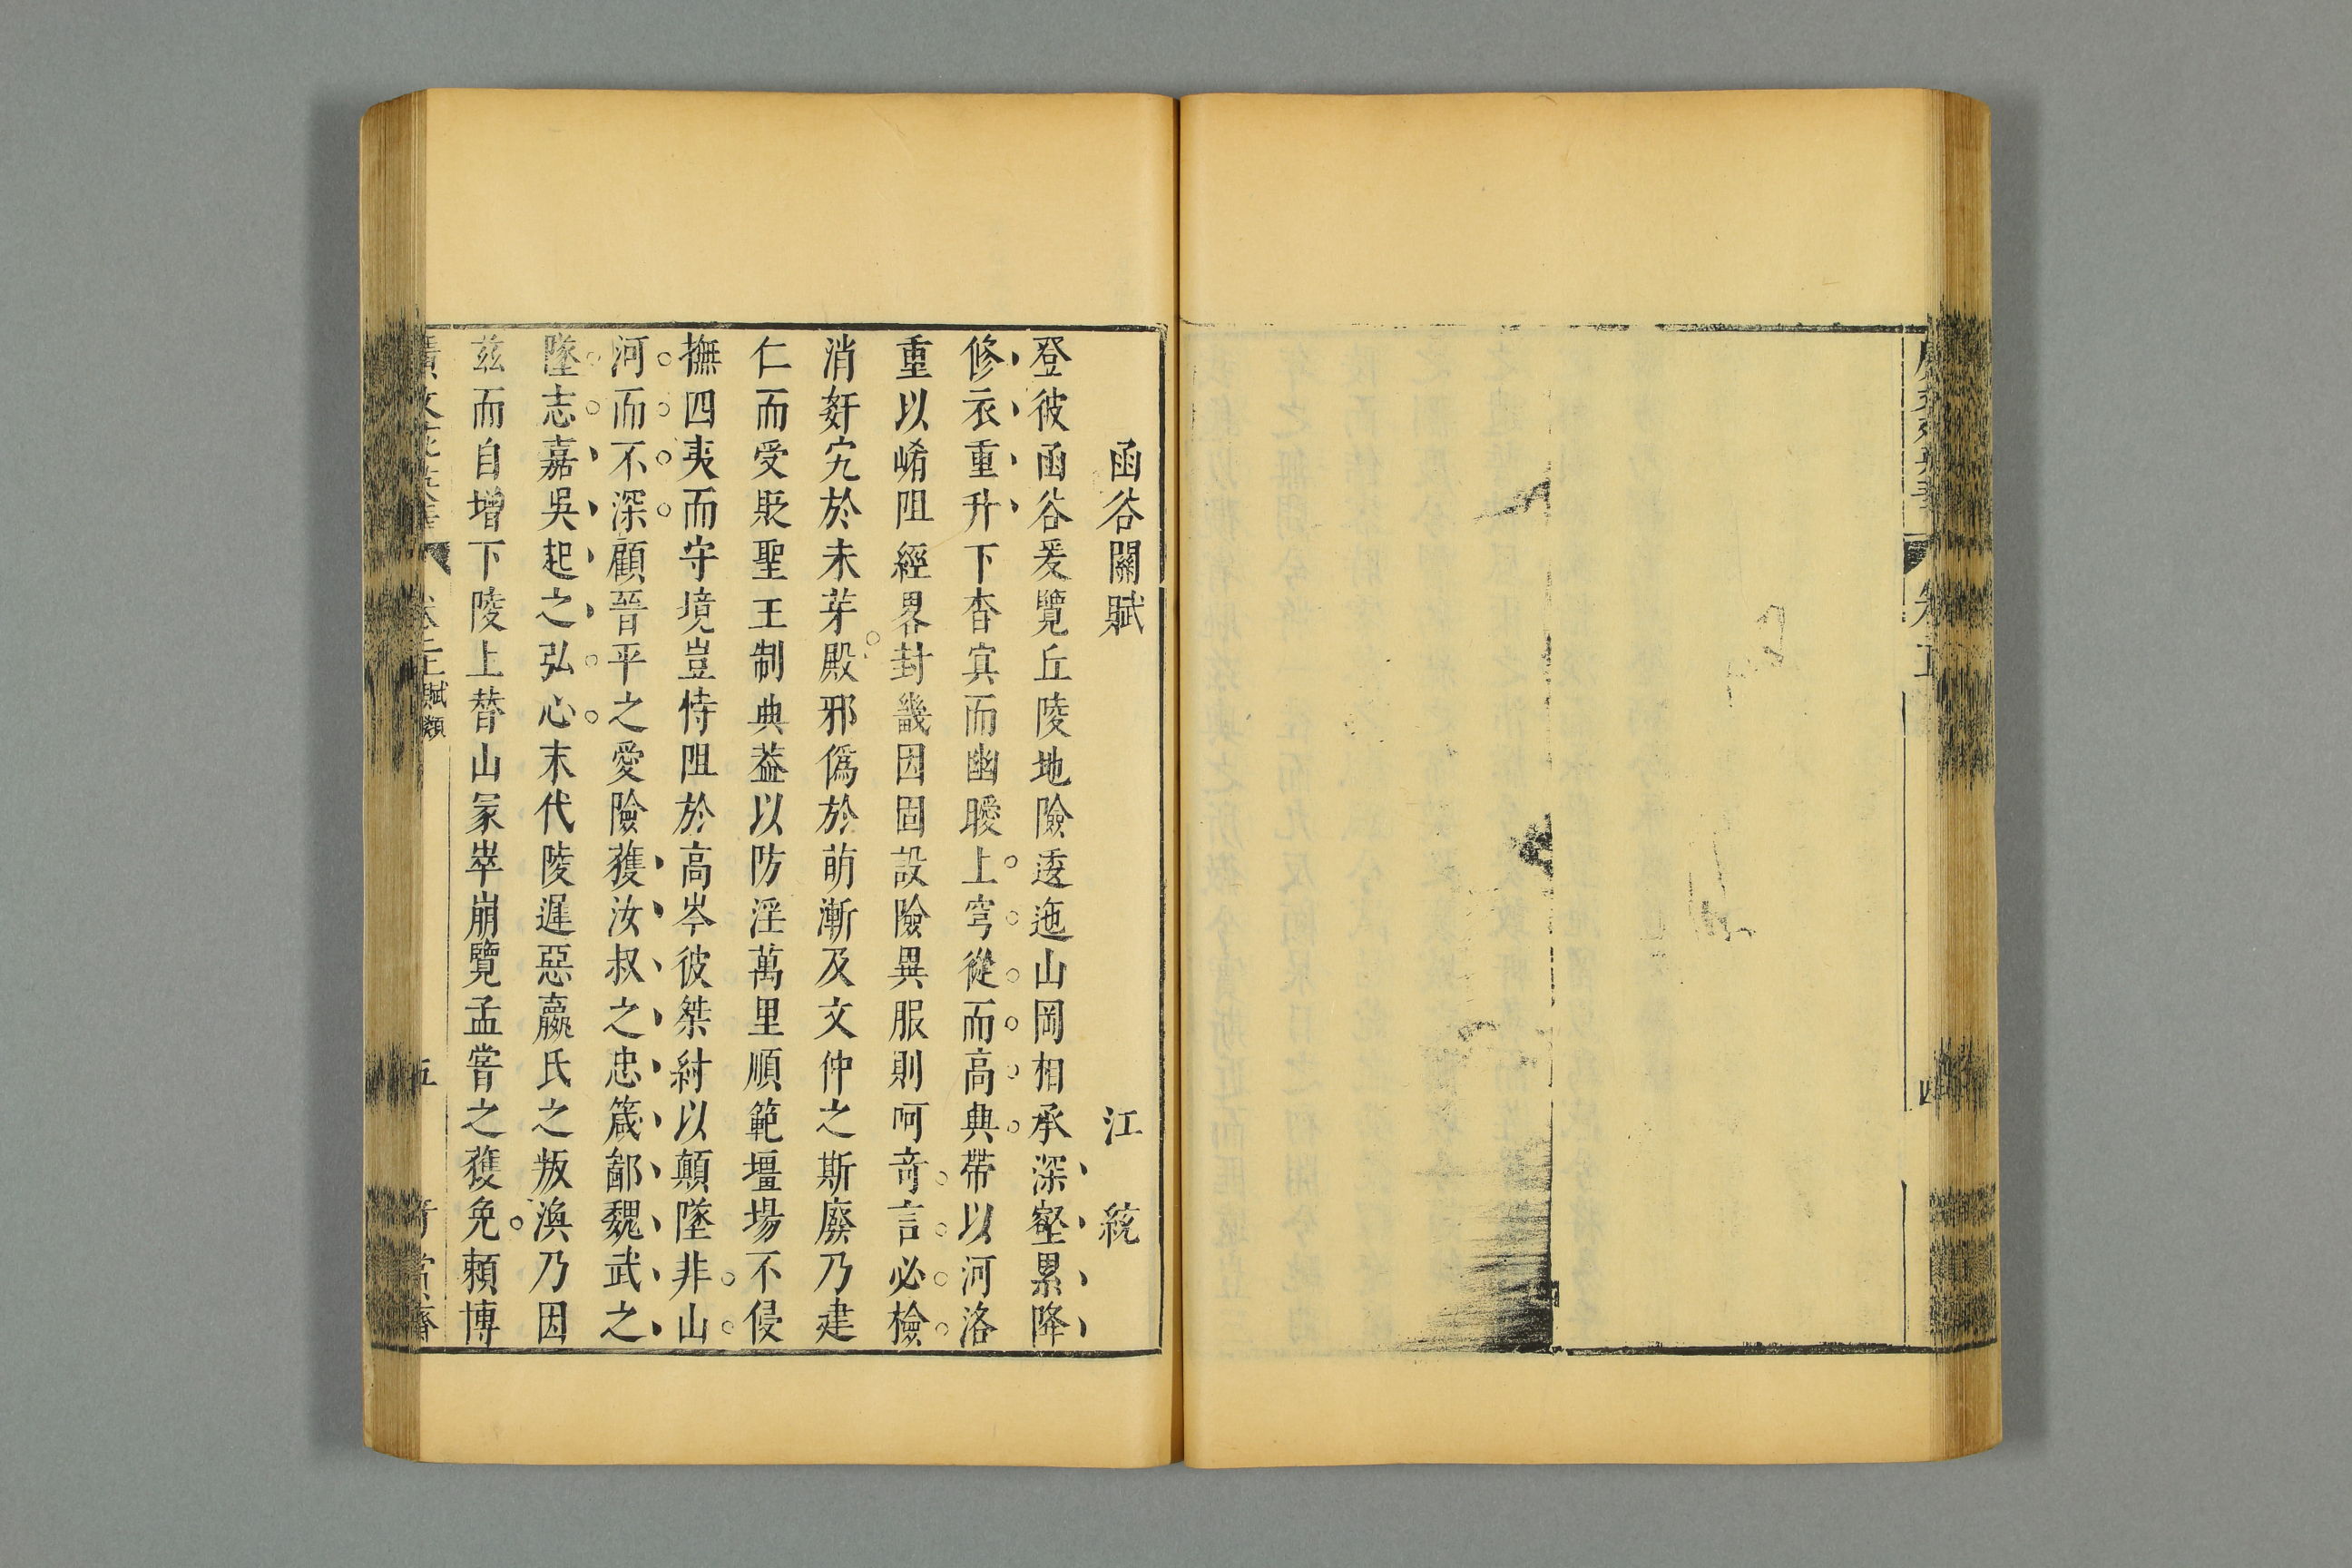 函谷關賦　江統
登彼函谷爰覽丘陵地險逶迤山岡相承深壑累降
修衣重升下杳冥而幽曖上穹從而高典帶以河洛
重以崤阻經界封畿因固設險異服則呵奇言必檢
消姧宄於未芽殿邪僞於萌漸及文仲之斯廢乃建
仁而受貶聖王制典葢以防淫萬里順範壃場不侵
撫四夷而守境豈恃阻於高岑彼桀紂以顛墜非山
河而不深顧晉平之愛險獲汝叔之忠箴鄙魏武之
墜志嘉吳起之弘心末代陵遲惡嬴氏之叛渙乃因
茲而自增下陵上替山冢崒崩覽孟嘗之獲免賴博
賦類
五